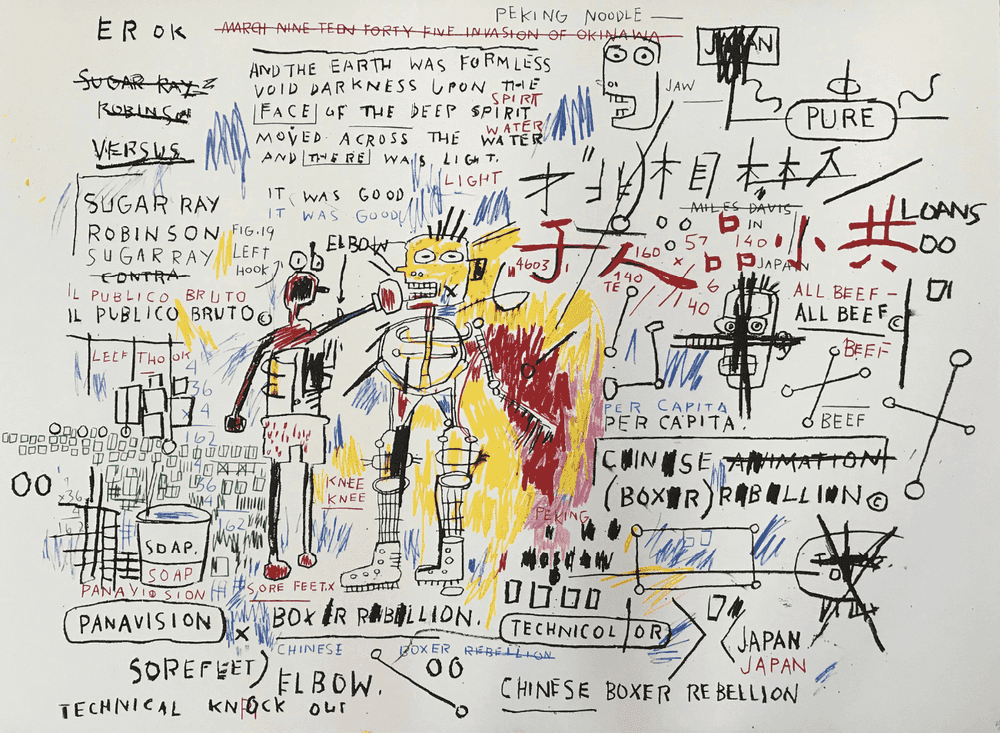 PEKING NOODLE
EROK
MARCH NINE TEEN FORTY FIVE INVASION OF OKINAWA
JAPAN
AND THE EARTH WAS FORMLESS
VOID DARKNESS UPON THE
SPIRIT
FACE OF THE DEEP SPIRIT
WATER
MOVED ACROSS THE WATER
AND THERE WAS LIGHT.
LIGHT
IT WAS GOOD
IT WAS GOOD
SUGAR RAY
ROBINSON
VERSUS
SUGAR RAY
ROBINSON
SUGAR RAY
CONTRA
IL PUBLICO BRUTO
IL PUBLICO BRUTO©
FIG.19
LEFT
HOOK
ELBOW
JAW
PURE
木目木木
MILES DAVIS
IN
JAPAN
人品小共
LOANS
00
4603
160
57
140
x
6
140
TE
40
ALL BEEF-
ALL BEEF©
BEEF
BEEF
PER CAPITA
PER CAPITA.
CHINESE ANIMATION
(BOXER) REBELLION©
4
36
x 4
162
36
4
162
00
1
x36
4
162
KNEE
KNEE
SOAP.
SOAP
PEKING
MOSCOW
PANAVISION
SORE FEET.X
PANAVISION
X
BOXER REBELLION.
TECHNICOLOR
CHINESE BOXER REBELLION
JAPAN
JAPAN
SOREFEET)
ELBOW.
00
CHINESE BOXER REBELLION
TECHNICAL KNOCK OUT